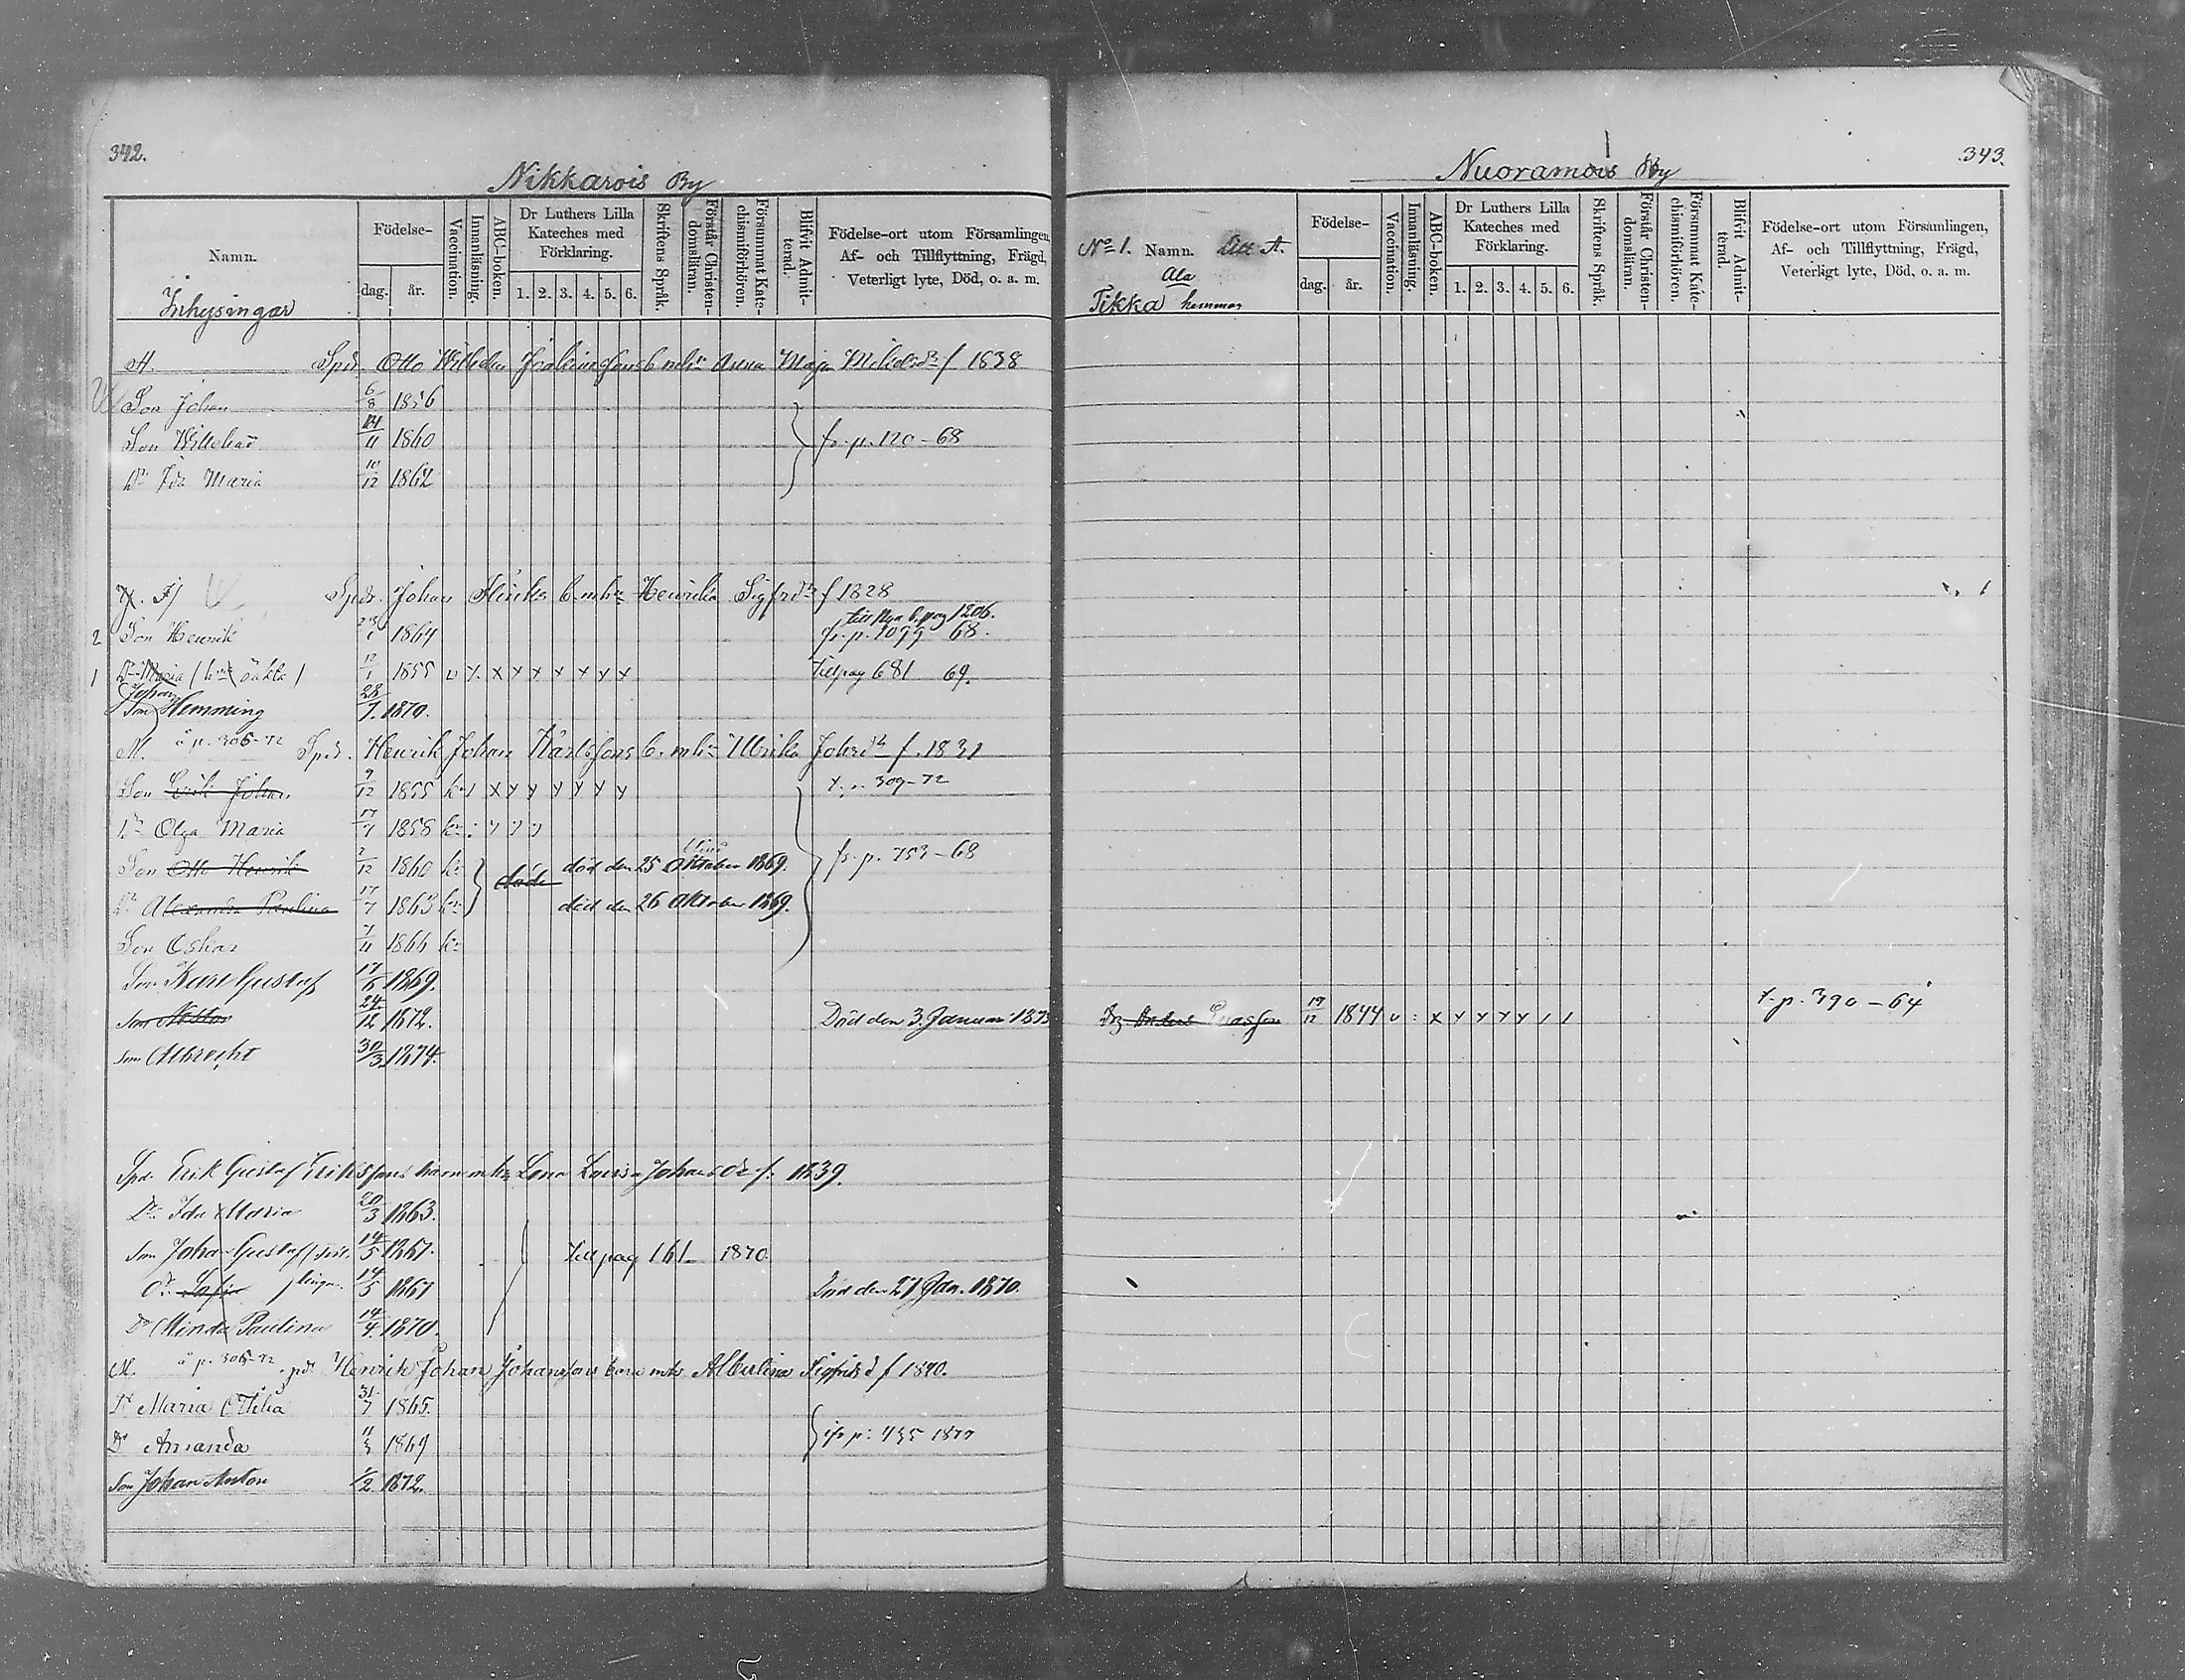 342.
Nikkarois By
Namn.
Födelse-
dag.
år.
Vaccination.
Innanläsning.
ABC-boken.
Dr Luthers Lilla
Kateches med
Förklaring.
1. 2. 3. 4. 5. 6.
Skriftens Språk.
Förstår Christen-
domsläran.
Försummat Kate-
chismiförhören.
Blifvit Admit-
terad.
Födelse-ort utom Församlingen,
Af- och Tillflyttning, Frägd,
Veterligt lyte, Död, o. a. m.
Inhysingar
Otto Wilhelm b. mhr Anna Maja f 1838
Son Johan 6/8 1856
Son 11 1860 fr. p. 120-68
Dr Ida Maria 10/12 1862
Johan b. mhr Henrika f 1828
2 Son Henrik 1864 fr. p. 1099 68.
pag 1206.
1 1855 v x x x x x x x Till pag 681 69.
Johan
Son Hemming 28/7. 1870.
M. å p. 305-72 Henrik Johan Karlssons b. mhr Ulrika f. 1831
Son Erik Johan 9/12 1855 x x x x x x x t. p. 309-72
Dr Olga Maria 17/7 1858
Son Otto Henrik 12 1860 död den 25 Oktober 1869. fr. p. 753-68
Dr Alexandra Paulina 17/7 1863 döde död den 26 Oktober 1869.
Son Oskar 7/11 1866
Son Karl Gustaf 17 1869.
Son 24/12 1872. Död den 3. Januari 1873
Son Albrecht 30/3 1874.
Erik Gustaf Erikssons barn mhr Lena Lovisa f. 1839.
Dr Ida Maria 20/3 1863.
Son Johan Gustaf 14/5 1867. Till pag 161 1870.
Dr Sofia 14/5 1867 Död den 27 Jan. 1870.
Dr Minda Paulina 14/4 1870.
M. å p. 305-72 Henrik Johan Johanssons barn mhr Albertina f 1840.
Dr Maria Othilia 31/7 1865.
Dr Amanda 11/3 1869
Son Johan Anton 1/2 1872.
343.
Nuoramois By
No 1. Namn. Litt A.
Ala
Tikka hemman
Födelse-
dag.
år.
Vaccination.
Innanläsning.
ABC-boken.
Dr Luthers Lilla
Kateches med
Förklaring.
1. 2. 3. 4. 5. 6.
Skriftens Språk.
Förstår Christen-
domsläran.
Försummat Kate-
chismiförhören.
Blifvit Admit-
terad.
Födelse-ort utom Församlingen,
Af- och Tillflyttning, Frägd,
Veterligt lyte, Död, o. a. m.
19/12 1844 v : x x x x x t. p. 390-64